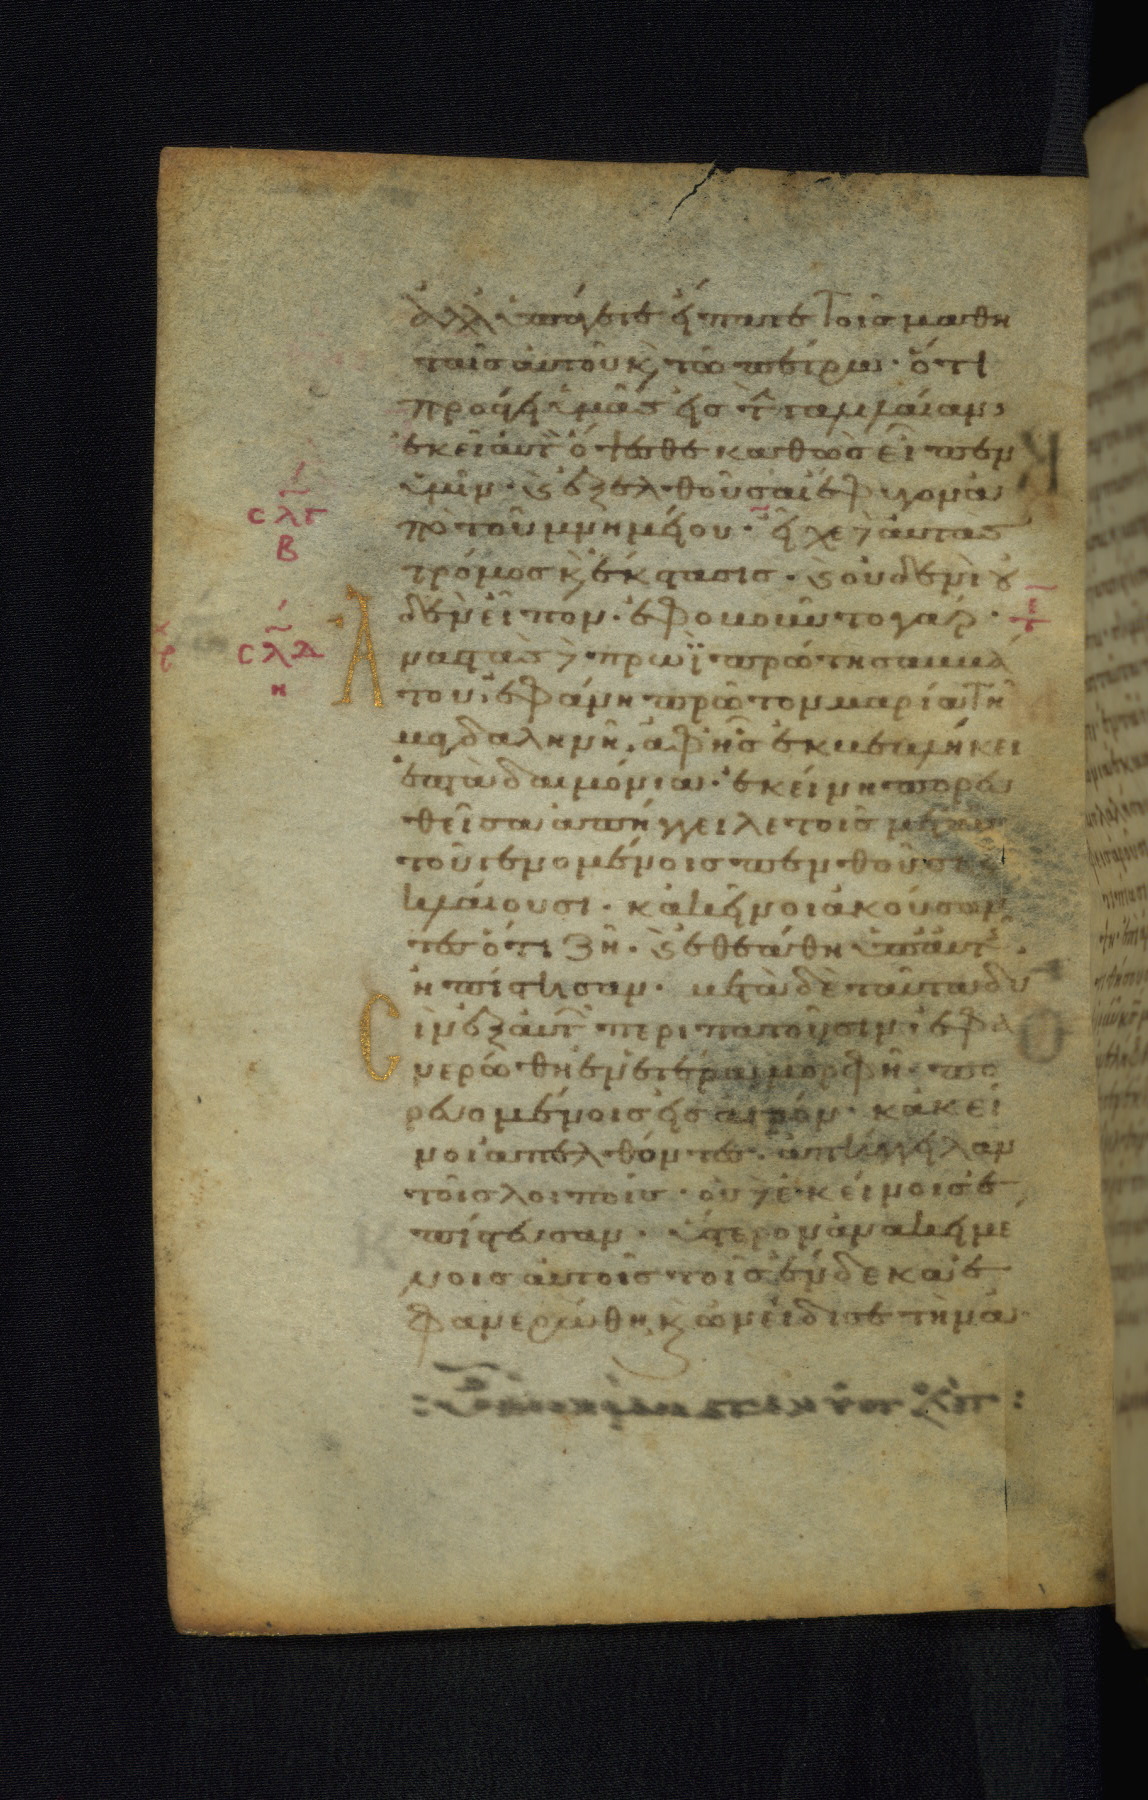 ἀλλ' ὑπάγετε εἴπατε τοῖς μαθη
ταῖς αὐτοῦ κ̀ τῶ πέτρω· ὅτι
προάγει ὑμᾶς εἰς τ̂ γαλιλαίαν·
ἐκεῖ αὐτ̀ ὄψεσθε καθὼς εἶπεν
ὑμῖν· κ̀ ἐξελθοῦσαι ἔφυγον ἀ
πὸ τοῦ μνημείου· εἶχε δὲ αὐτὰς
τρόμος κ̀ ἔκστασις· κ̀ οὐδενὶ οὐ
δὲν εἶπον· ἐφοβοῦντο γάρ·
Ἀναστὰς δὲ πρωῒ πρώτη σαββά
του· ἐφάνη πρῶτον μαρία τῆ
μαγδαληνῆ, ἀφ' ῆς ἐκβεβλήκει
ἑπτὰ δαιμόνια· ἐκείνη πορευ
θεῖσα ἀπήγγειλε τοῖς μετ' αὐ
τοῦ γενομένοις πενθοῦσι κ̀
κλαίουσι· κἀκεῖνοι ἀκούσαν
τες ὅτι ζῆ· κ̀ ἐθεάθη ὑπ' αὐτῆς·
ἠπίστησαν· μετὰ δὲ ταῦτα δυ
σὶν ἐξ αὐτῶν περιπατοῦσιν ἐφα
νερώθη ἐν ἑτέρα μορφῆ πο
ρευομένοις εἰς ἀγρόν· κἀκεῖ
νοι ἀπελθόντες· ἀπήγγειλαν
τοῖς λοιποῖς· οὐδὲ ἐκείνοις ἐ
πίστευσαν· ὕστερον ἀνακειμέ
νοις αὐτοῖς τοῖς ἕνδεκα ἐ
φανερώθη, κ̀ ὠνείδισε τὴν ἀ
σλγ
β
σλδ
η